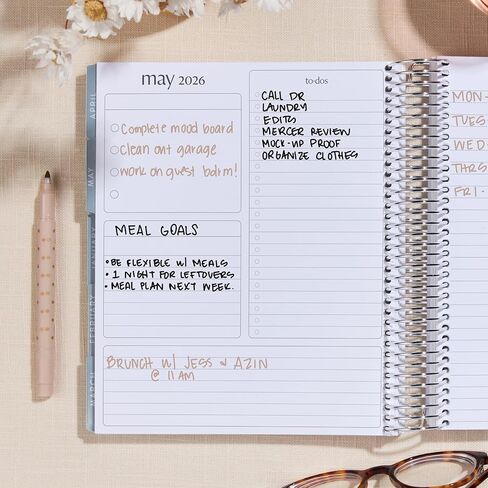 APRIL
MAY
JANUARY
FEBRUARY
MARCH
may 2026
Complete mood board
Clean out garage
work on guest bdrm!
MEAL GOALS
• BE FLEXIBLE W/ MEALS
• 1 NIGHT FOR LEFTOVERS
• MEAL PLAN NEXT WEEK.
to-dos
CALL DR
LAUNDRY
EDITS
MERCER REVIEW
MOCK-UP PROOF
ORGANIZE CLOTHES
BRUNCH W/ JESS & AZIN
@ 11 AM
MON -
TUES
WED
THRS
FRI -